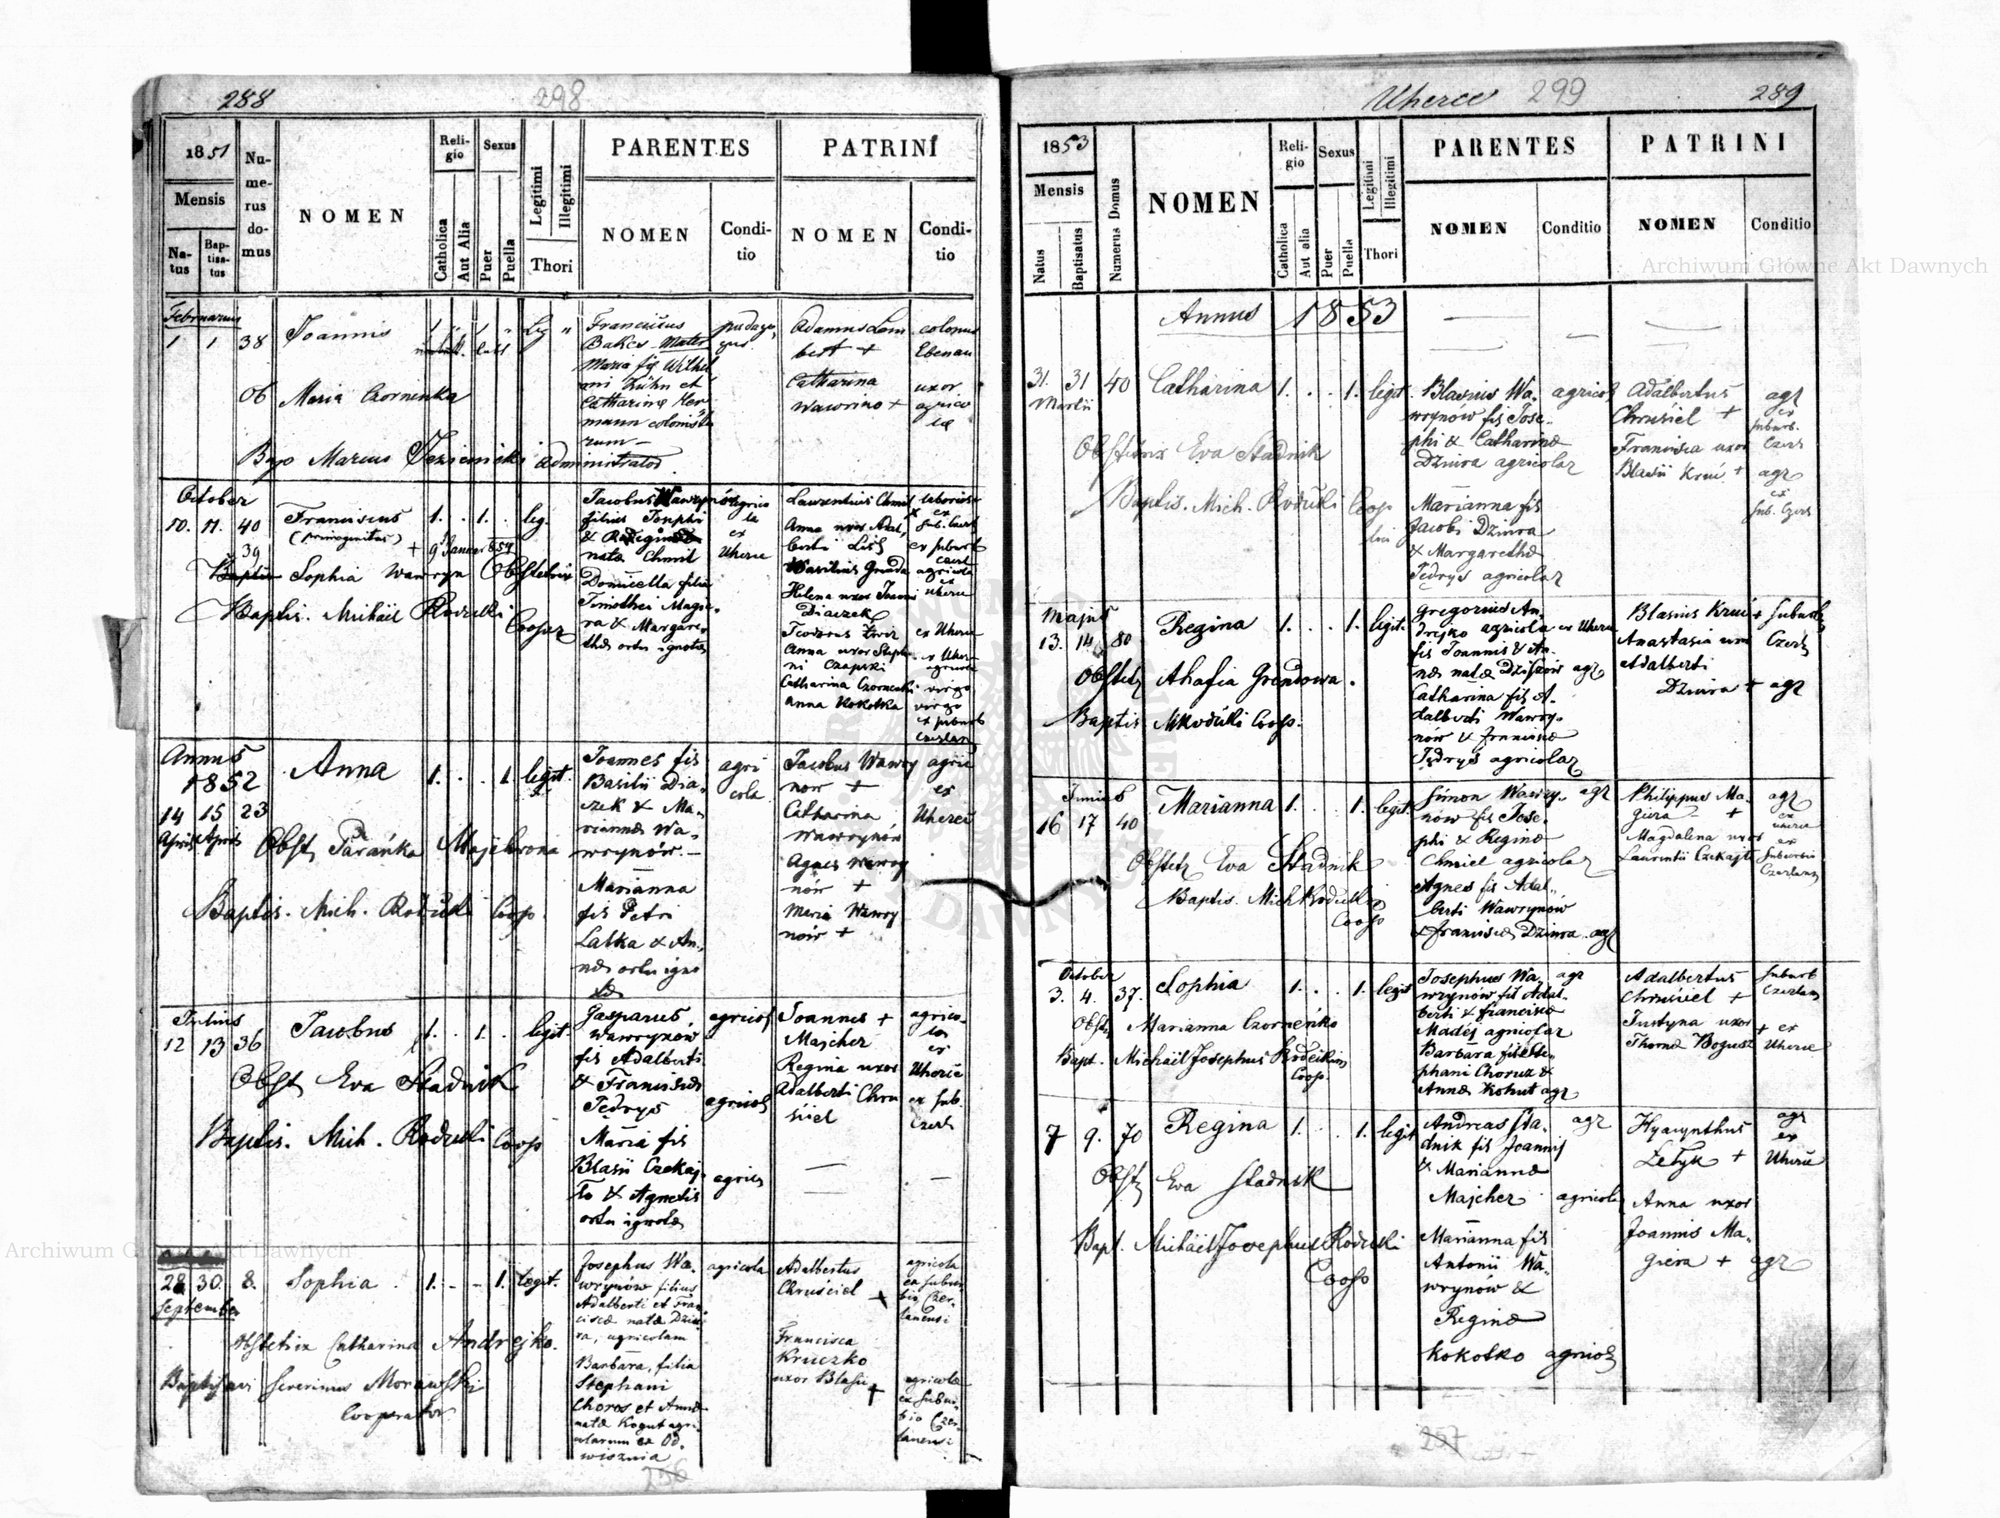 288
298
1851
Mensis
Na-
tus
Bap-
tisa-
tus
Nu-
me-
rus
do-
mus
NOMEN
Reli-
gio
Catholica
Aut Alia
Sexus
Puer
Puella
Legitimi
Illegitimi
Thori
PARENTES
NOMEN
Condi-
tio
PATRINI
NOMEN
Condi-
tio
Februarius
1 1 38 Joannis
Leg "
Franciscus
Bakes Mater
Maria fis Wilhel
mi Kühn et
Catharina Her
mann colonisto
rum
Adamus Lam
bert +
Catharina
Wawrino +
colonus
Ebenau
uxor
agrico
lae
Ob Maria Czornenka
Bap Marcus administrator
October
10. 11. 40 Franciscus 1. . 1. . leg.
(primogenitus)
39
+ 9 Januar 854
Sophia Wawryn Obstetrix
Baptis. Michael Rodzuki Coopr
Jacobus Wawrynów
filius Josephi
& Regina
nata Chmil
Domicella filia
Timothei Magie-
ra & Margare-
tha ortu ignota
agrico
la
ex
Uherce
Laurentius Chmil
Anna uxor Adal,
berti Lis
Wasilius Grenda
Helena uxor Joanni
Diaczek
Teodorus Zwir
Anna uxor Steph-
ni Czapski
Catharina Czornecki
Anna Kokotka
laborios
ex
sub. Czerl
ex suburb
Czerl
agricola
ex
Uherce
ex Uherce
ex Uherc
virgo
virgo
ex suburb
Annus
1852
14 15 23
Aprilis Aprilis
Anna 1. . . 1 legit.
Obst Parańka Majchrowa
Baptis. Mich. Rodzuki Coop.
Joannes fis
Basilii Dia-
czek & Ma-
rianna Wa-
wrynów.
Marianna
fis Petri
Latka & An-
na ortu igno
ta
agri
cola
Jacobus Wawry
now +
Catharina
Wawrynów
Agnes Wawry
nów +
Maria Wawry
nów +
agric
ex
Uherce
Julius
12 13 36 Jacobus 1. . 1. . legit.
Obst Eva Stadnik
Baptis. Mich. Rodzuki Coop
Gasparus
Wawrynów
fis Adalberti
& Francisca
Jędrys
Maria fis
Blasii Czekaj-
to & Agnetis
ortu ignota
agricol
agricol
agricol
Joannes +
Majcher
Regina uxor
Adalberti Chru
ściel
agrico-
la
ex
Uherce
ex sub.
Czerl
28 30. 8. Sophia 1. - - 1. Legit.
September
Obstetrix Catharina Andrejko.
Baptisavi Severinus Morawski
Cooperator
Josephus Wa-
wrynów filius
Adalberti et Fran-
cisca nata Dziu-
ra, agricolam
Barbara, filia
Stephani
Choros et Anna
nata Kogut agri-
colarum ex Od-
wisznia
agricola
Adalbertus
Chruściel +
Francisca
Kruczko
uxor Blasii +
agricola
ex subur
bio Czer-
lanensi
agricola
ex subur-
bio Czer-
lanensi
256
Uherce 299
289
1853
Mensis
Natus
Baptisatus
Numerus Domus
NOMEN
Reli-
gio
Catholica
Aut alia
Sexus
Puer
Puella
Legitimi
Illegitimi
Thori
PARENTES
NOMEN
Conditio
PATRINI
NOMEN
Conditio
Annus 1853
31. 31 40 Catharina 1. . . 1. legit.
Martii
Obstetrix Eva Stadnik
Baptis. Mich. Rodzuki Coop
Blasius Wa-
wrynów fis Jose-
phi & Catharina
Dziura agricolar
Marianna fis
Jacobi Dziura
& Margaretha
Jędrys agricolar
agricol
Adalbertus
Chruściel +
Francisca uxor
Blasii Kruć +
agr
ex
suburb.
Czerl
agr
ex
sub. Czerl
Majus
13. 14 80 Regina 1. . . 1. legit.
Obstetr Ahafia Grendowa.
Baptis MRodzuki Coop.
Gregorius An-
drejko agricola ex Uherce
fis Joannis & An-
na nata Dziszów agr
Catharina fis A-
dalberti Wawry-
now & Francisca
Jędrys agricolar
Blasius Kruć +
Anastasia uxor
Adalberti
Dziura +
suburb
Czerl
agr
Junius
16 17 40 Marianna 1. . . 1. legit.
Obstetr Eva Stadnik
Baptis. Mich Rodzuki
Coop
Simon Wawry- agr
nów fis Jose-
phi & Regina
Chmiel agricolar
Agnes fis Adal-
berti Wawrynów
& Francisca Dziura agr
Philippus Ma-
giera +
Magdalena uxor
Laurentii Czekajto
agr
ex
Uherce
ex
suburbio
Czerlans
October
3. 4. 37. Sophia 1. . . 1. legit
Obstr Marianna Czorneńko
Bapt. Michael Josephus
Coop.
Josephus Wa- agr
wrynów fis Adal-
berti & Francisca
Madej agricolar
Barbara fis Ste-
phani Choruz &
Anna Kohut agr
Adalbertus
Chruściel +
Justyna uxor
Thoma Bogusz +
suburb
Czerlan
ex
Uherce
7 9. 70 Regina 1. . . 1. legit
Obstr Eva Stadnik
Bapt. Michael Josephus Rodzuki
Coop
Andreas Sta- agr
dnik fis Joannis
& Marianna
Majcher agricola
Marianna fis
Antonii Wa-
wrynów &
Regina
Kokotko agricol
Hyacynthus
Zetyk +
Anna uxor
Joannis Ma-
giera +
agr
ex
Uherce
agr
257
Archiwum Główne Akt Dawnych
Archiwum Główne Akt Dawnych